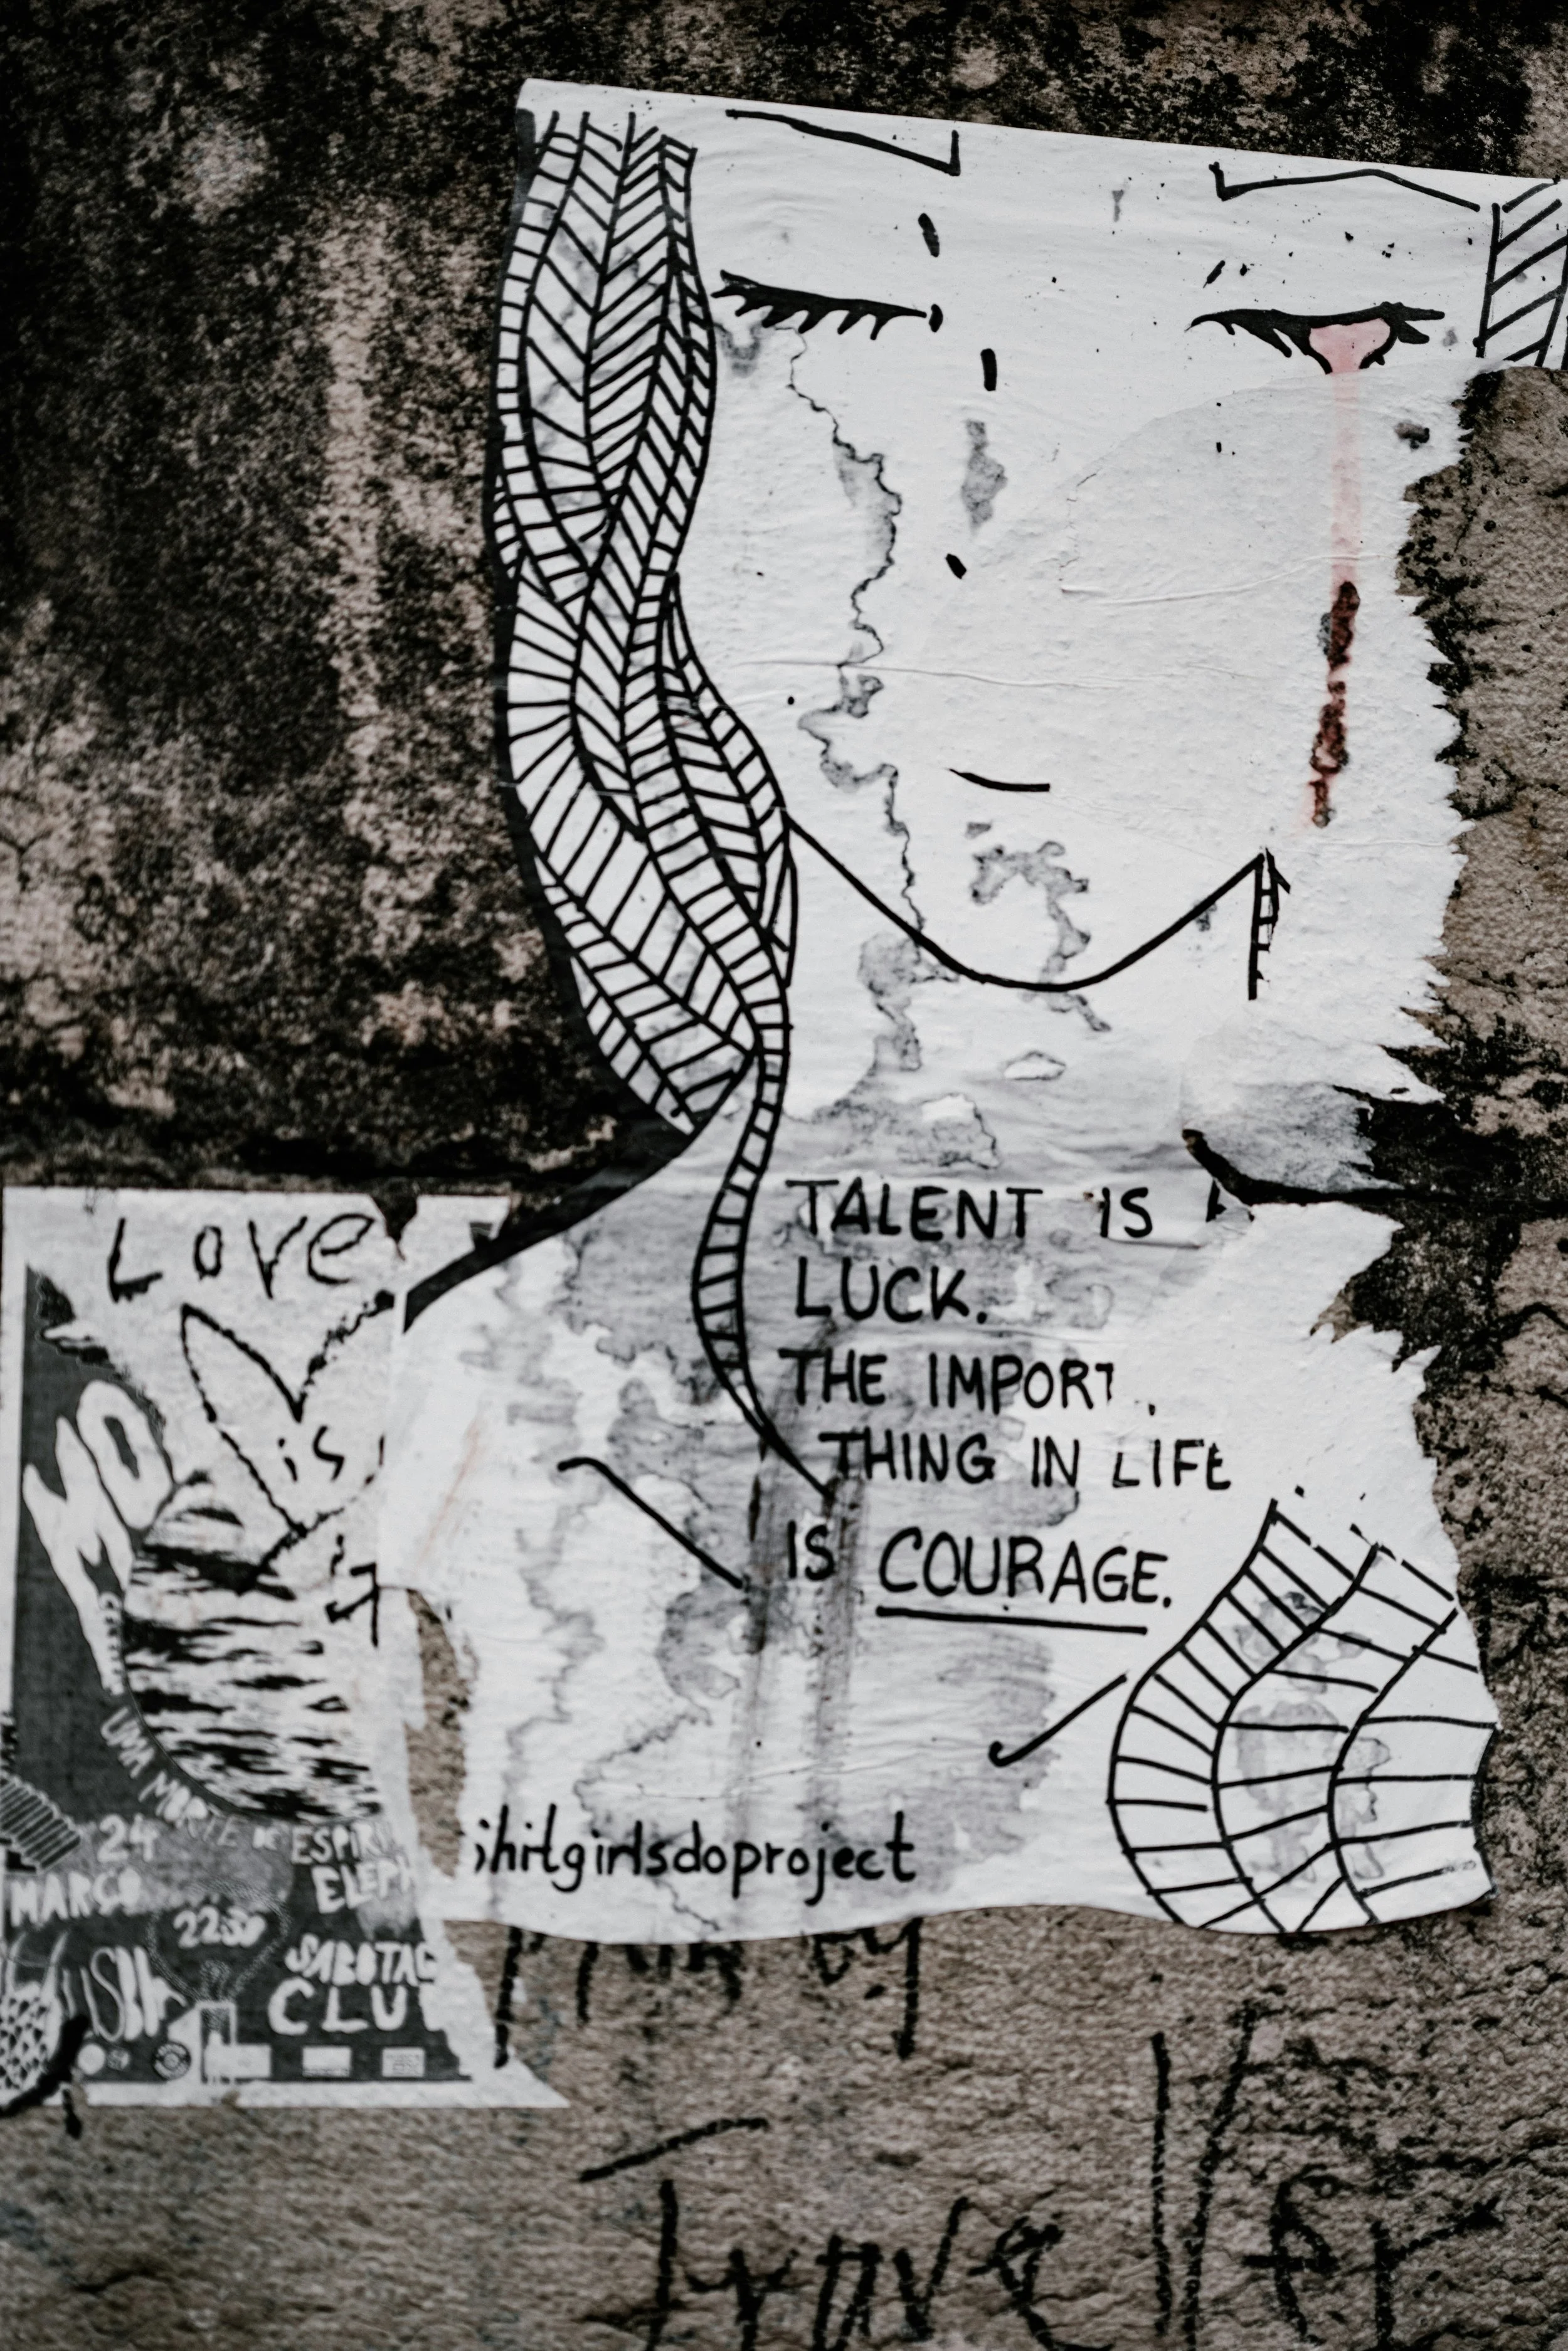 TALENT IS
LUCK.
THE IMPORT
THING IN LIFE
IS COURAGE.
ihitgirlsdoproject
Love
is
UMA MORTE
24
MARÇO
22:30
SABOTAG
CLU
Traveller